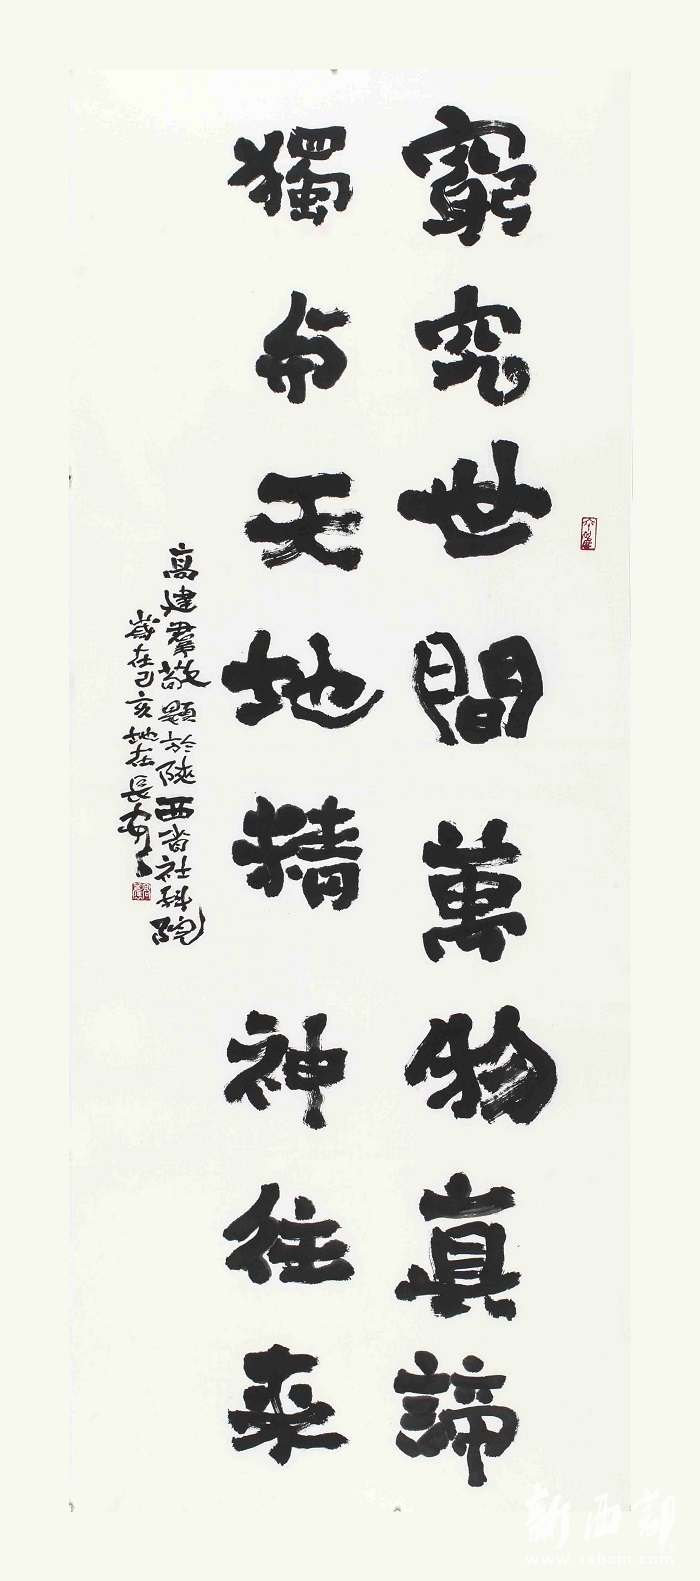 窮究世間萬物真諦
獨与天地精神往来
高建羣敬題於陝西省社科院
歲在己亥地在長安
新西部
www.xxbcm.com